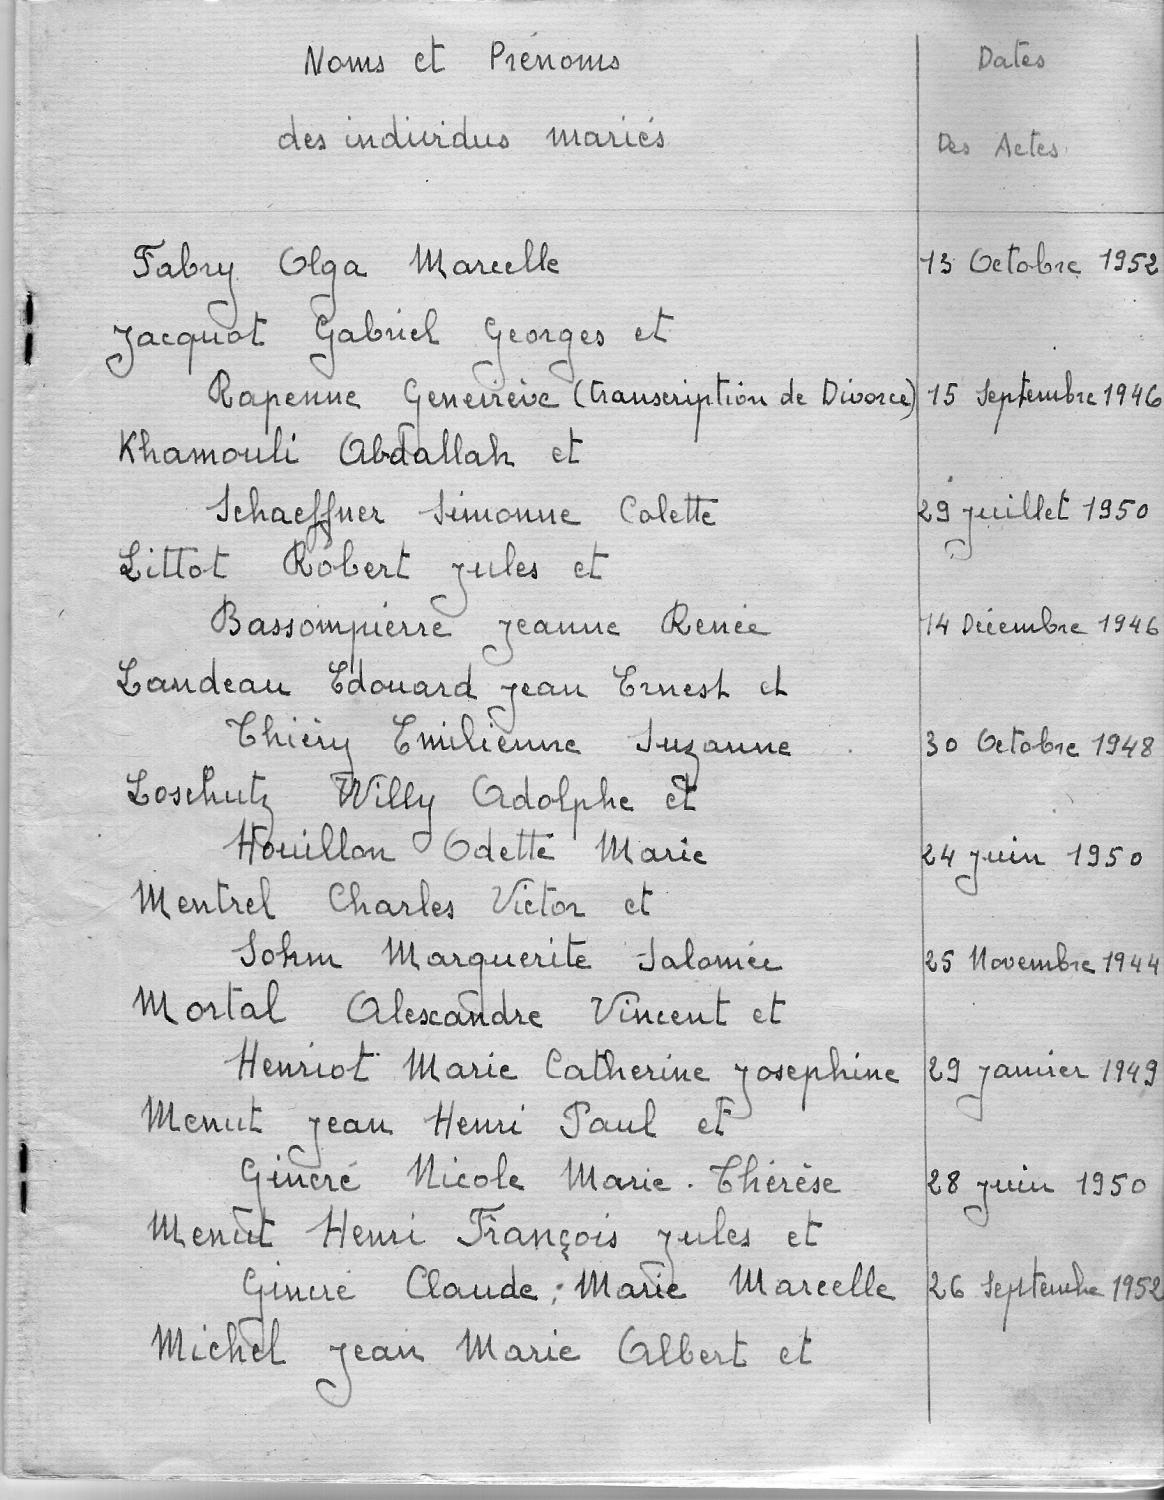 Noms et Prénoms Dates
des individus mariés Des Actes
Fabry Olga Marcelle 13 Octobre 1952
Jacquot Gabriel Georges et
Rapenne Geneviève (transcription de Divorce) 15 Septembre 1946
Khamouli Abdallah et
Schaeffner Simonne Colette 29 juillet 1950
Littot Robert Jules et
Bassompierre Jeanne Renée 14 Décembre 1946
Landeau Edouard Jean Ernest et
Thiéry Emilienne Suzanne 30 Octobre 1948
Loschutz Willy Adolphe et
Houillon Odette Marie 24 juin 1950
Mentrel Charles Victor et
Sohm Marguerite Salomée 25 Novembre 1944
Mortal Alexandre Vincent et
Henriot Marie Catherine Josephine 29 janvier 1949
Menut Jean Henri Paul et
Gineré Nicole Marie. Thérèse 28 juin 1950
Menut Henri François Jules et
Gineré Claude; Marie Marcelle 26 Septembre 1952
Michel Jean Marie Albert et